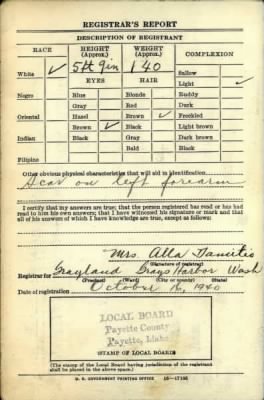 REGISTRAR'S REPORT
DESCRIPTION OF REGISTRANT
RACE
HEIGHT
(Approx.)
WEIGHT
(Approx.)
COMPLEXION
White ✓
5ft 9in
140
Sallow
EYES
HAIR
Light ✓
Negro
Blue
Blonde
Ruddy
Gray
Red
Dark
Oriental
Hazel
Brown ✓
Freckled
Brown ✓
Black
Light brown
Indian
Black
Gray
Dark brown
Bald
Black
Filipino
Other obvious physical characteristics that will aid in identification
Scar on left forearm
I certify that my answers are true; that the person registered has read or has had
read to him his own answers; that I have witnessed his signature or mark and that
all of his answers of which I have knowledge are true, except as follows:
Mrs. Alla
(Signature of registrar)
Registrar for Grayland Grays Harbor Wash
(Precinct) (Ward) (City or county) (State)
Date of registration October 16, 1940
LOCAL BOARD
Payette County
Payette, Idaho
(STAMP OF LOCAL BOARD)
(The stamp of the Local Board having jurisdiction of the registrant
shall be placed in the above space.)
U. S. GOVERNMENT PRINTING OFFICE 16—17105